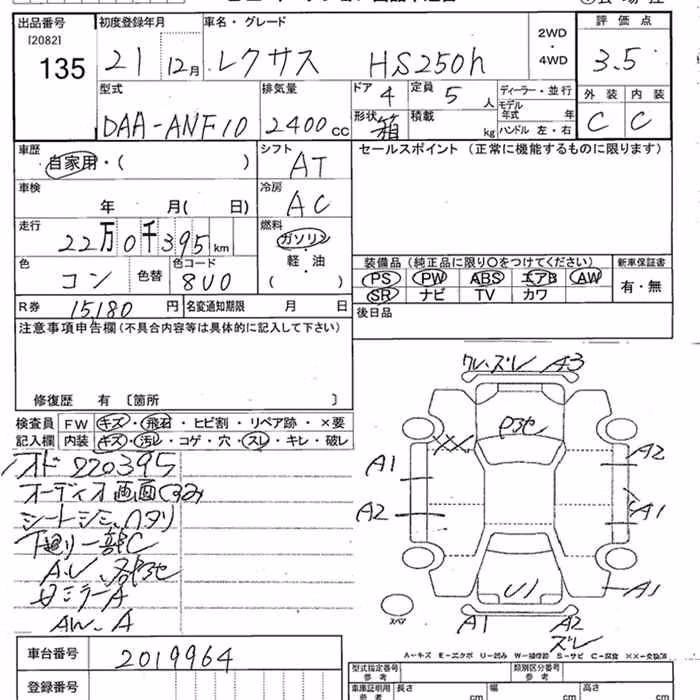 出品番号 初度登録年月 車名・グレード 評価点
[2082]
135 21 12月 レクサス HS250h 2WD・4WD 3.5
型式 排気量 ドア 4 定員 5人 ディーラー・並行 外装 内装
DAA-ANF10 2400cc 形状 箱 積載 kg モデル年式 年 C C
ハンドル 左・右
車歴 シフト セールスポイント (正常に機能するものに限ります)
自家用・( ) AT
車検 冷房
年 月( 日) AC
走行 燃料
22万0千395km ガソリン
軽・油
( )
色 コン 色替 色コード 8U0
装備品 (純正品に限り○をつけてください) 新車保証書
PS PW ABS エアB AW 有・無
SR ナビ TV カワ
R券 15,180円 名変通知期限 月 日 後日品
注意事項申告欄(不具合内容等は具体的に記入して下さい)
修復歴 有 〔箇所 〕
検査員 FW キズ・飛石・ヒビ割・リペア跡・×要
記入欄 内装 キズ・汚レ・コゲ・穴・スレ・キレ・破レ
220395
オーディオ画面くすみ
シートシミ、ヘタリ
下廻り一部C
ミラーA
AW、A
ズレ A3
XX
A1 A2
A2 A1
U1 A1
スペア A1 A2
ズレ
A-キズ E-エクボ U-凹み W-補修跡 S-サビ C-腐食 XX-交換済
車台番号 2019964
登録番号
型式指定番号 参考 類別区分番号 参考
車庫証明用 参考 長さ cm 幅 cm 高さ cm